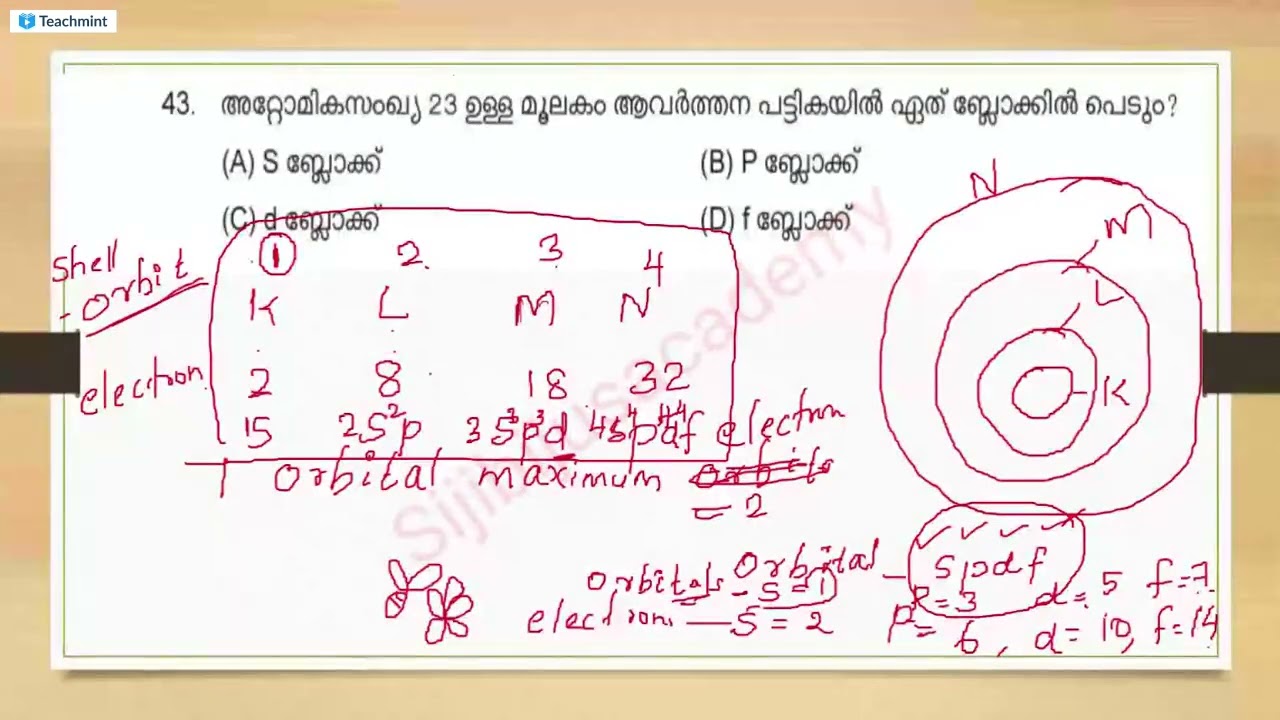 Teachmint
43. അറ്റോമികസംഖ്യ 23 ഉള്ള മൂലകം ആവർത്തന പട്ടികയിൽ ഏത് ബ്ലോക്കിൽ പെടും?
(A) S ബ്ലോക്ക് (B) P ബ്ലോക്ക്
(C) d ബ്ലോക്ക് (D) f ബ്ലോക്ക്
shell 1 2 3 4
- orbit K L M N
electron 2 8 18 32
1S 2S²p 3S³p³d 4s⁴p⁴d⁴f electron
1 orbital maximum
= 2
N
M
L
K
orbital - spdf
orbitals - S = 1 P = 3 d = 5 f = 7
electron — S = 2 P = 6, d = 10, f = 14
Sijibiusacademy